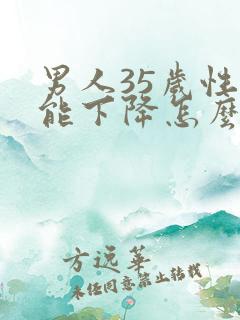 男人35歲性
能下降怎麼
方远華
未任同意禁止转载